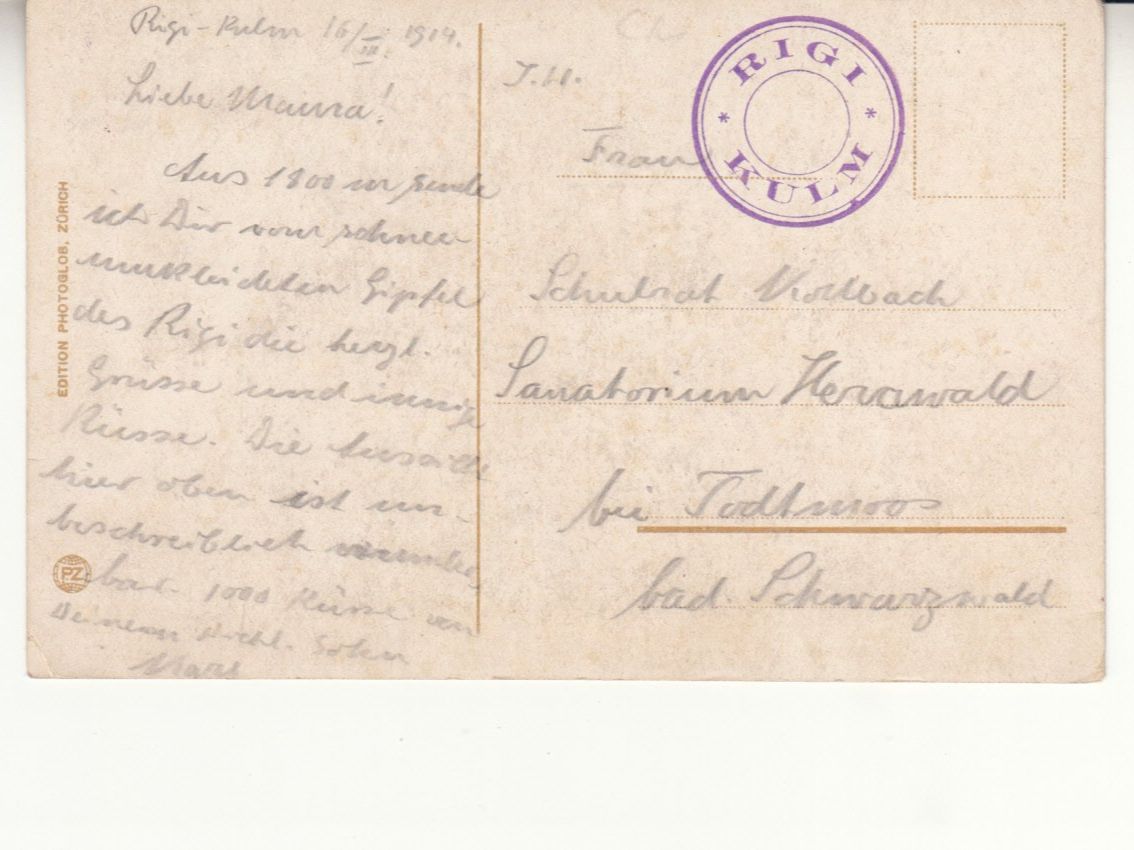 Rigi-Kulm 16/III. 1914.
Liebe Mama!
Aus 1800 m sende
ich Dir vom schnee-
umkleideten Gipfel
des Rigi die herzl.
Grüsse und innige
Küsse. Die Aussicht
hier oben ist un-
beschreiblich wunder-
bar. 1000 Küsse von
Deinem Sohn
EDITION PHOTOGLOB, ZÜRICH
PZ
RIGI
KULM
Frau
Schulrat
Sanatorium
bei Todtmoos
bad. Schwarzwald